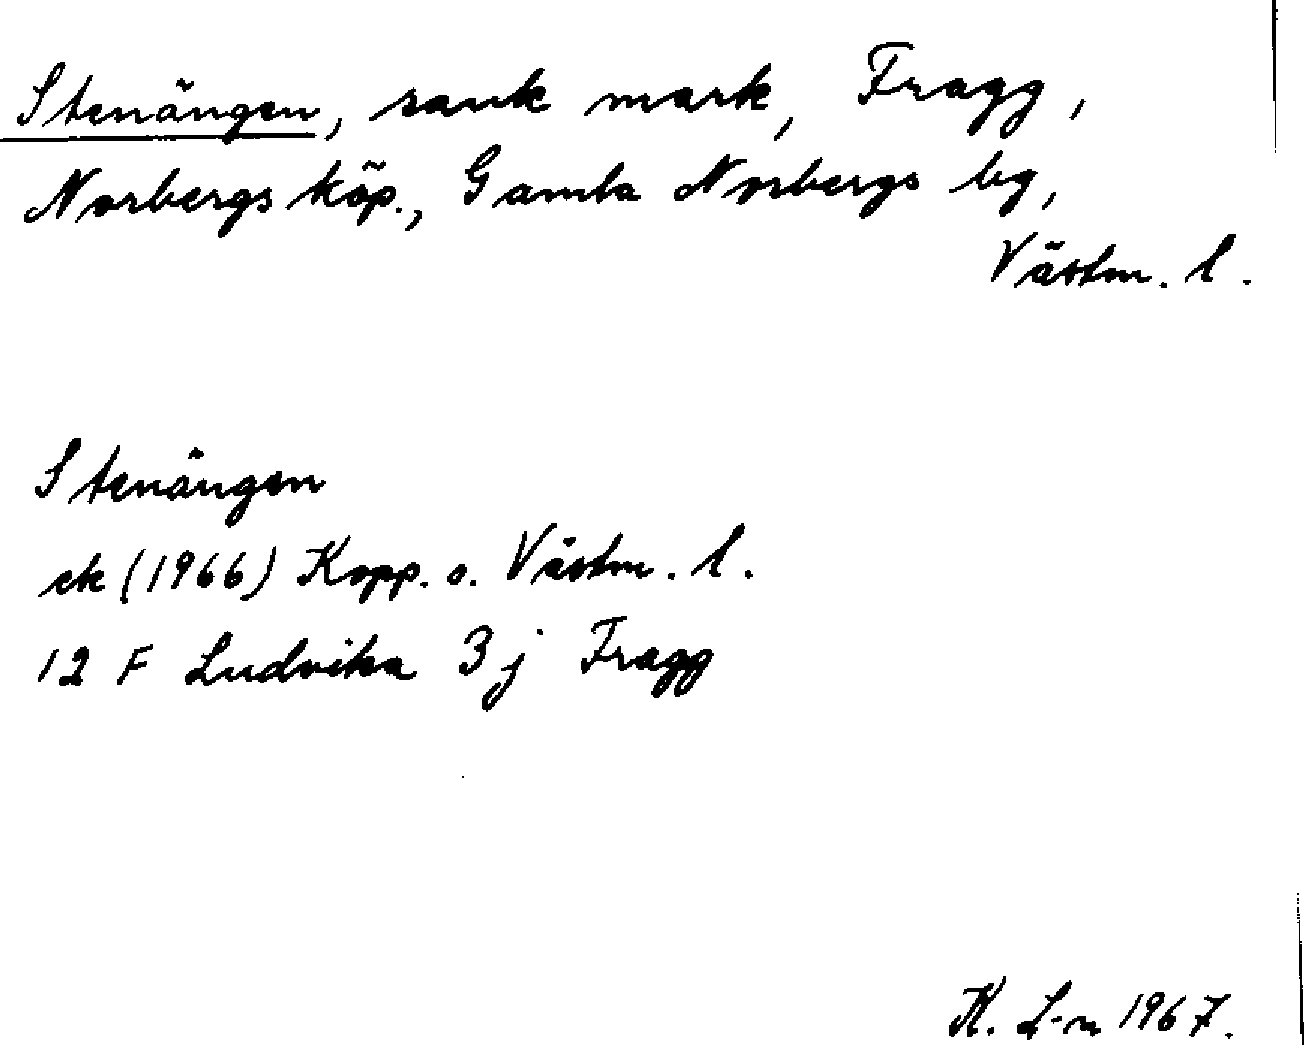 Stenängen, sank mark, Fragg,
Norbergs köp., Gamla Norbergs bg,
Västm. l.
Stenängen
ek (1966) Kopp. o. Västm. l.
12 F Ludvika 3 j Fragg
K. L-n 1967.